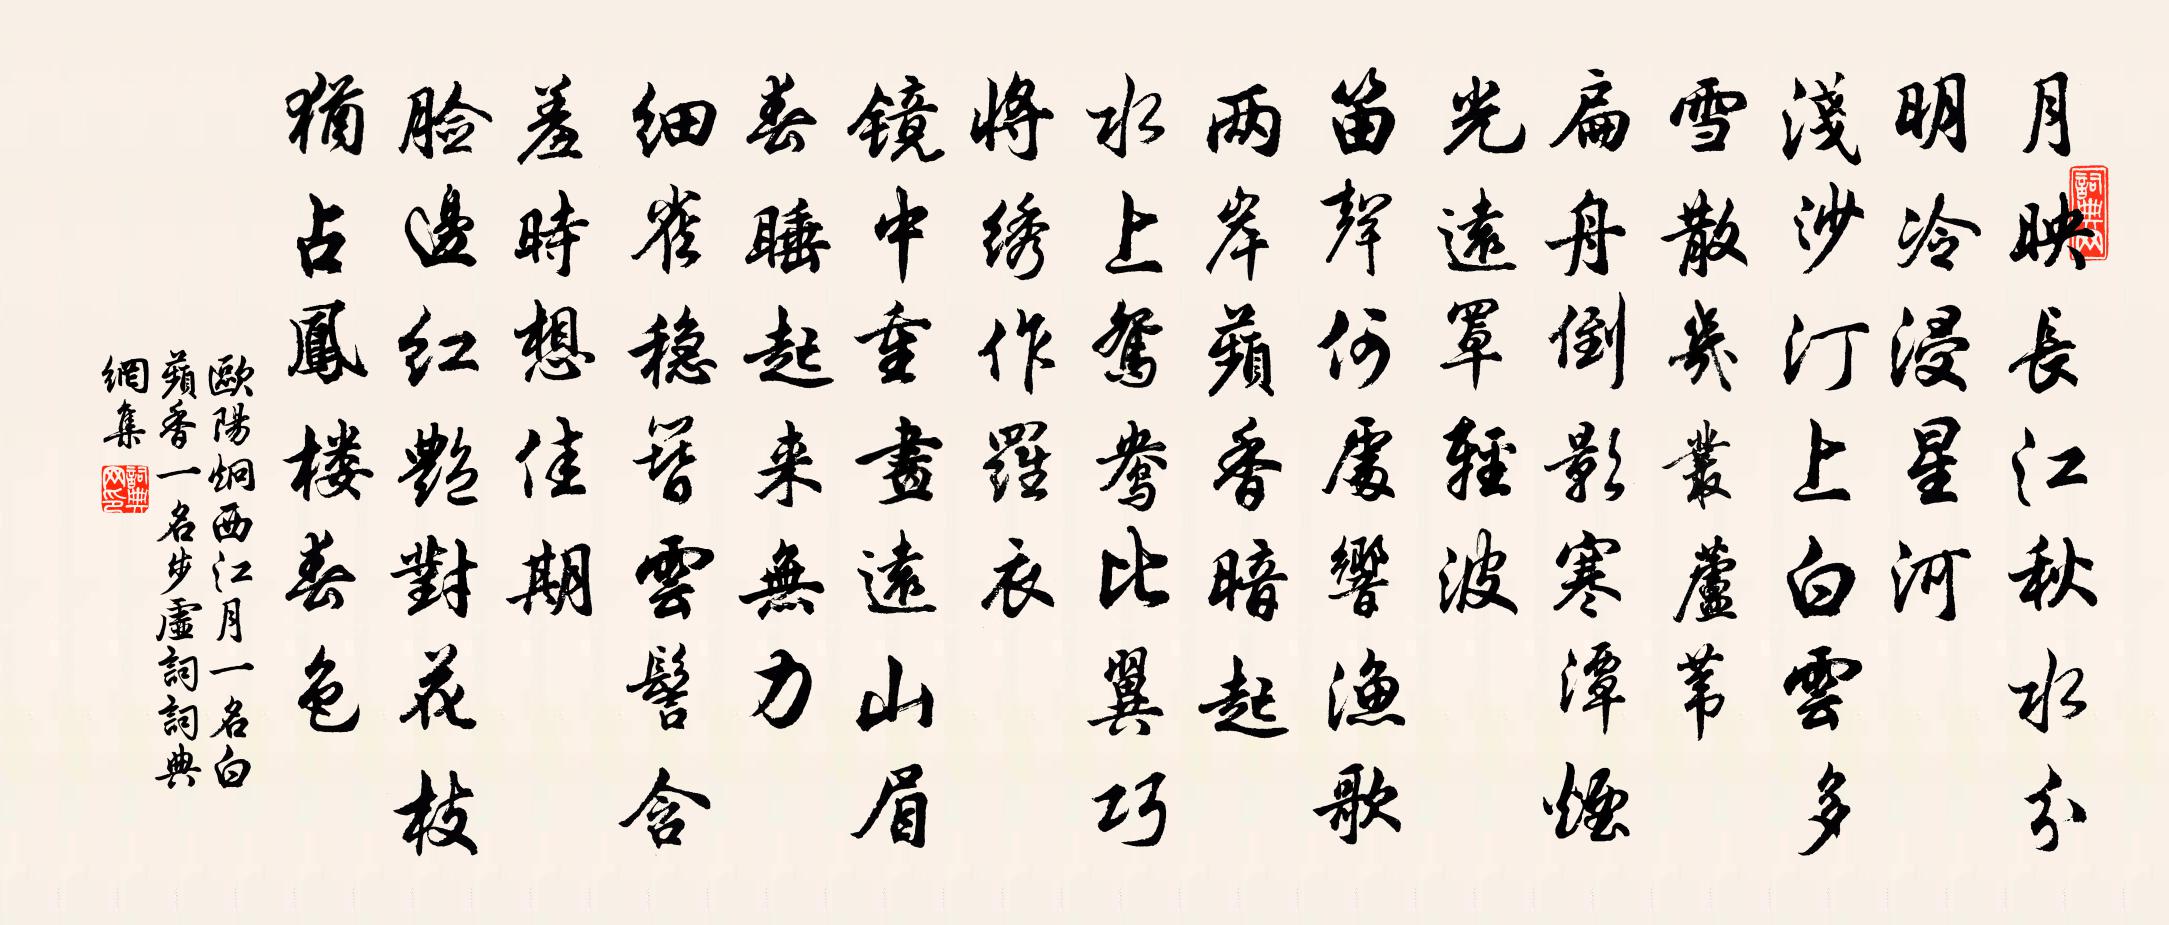 月映長江秋水分
明冷浸星河
淺沙汀上白雲多
雪散幾叢蘆葦
扁舟倒影寒潭煙
光遠罩輕波
笛聲何處響漁歌
两岸蘋香暗起
水上鴛鴦比翼巧
將綉作羅衣
鏡中重畫遠山眉
春睡起来無力
細雀穩簪雲髻含
羞時想佳期
臉邊紅艷對花枝
猶占鳳樓春色
歐陽炯西江月一名白
蘋香一名步虛詞詞典
網集
詞典网
詞典网印